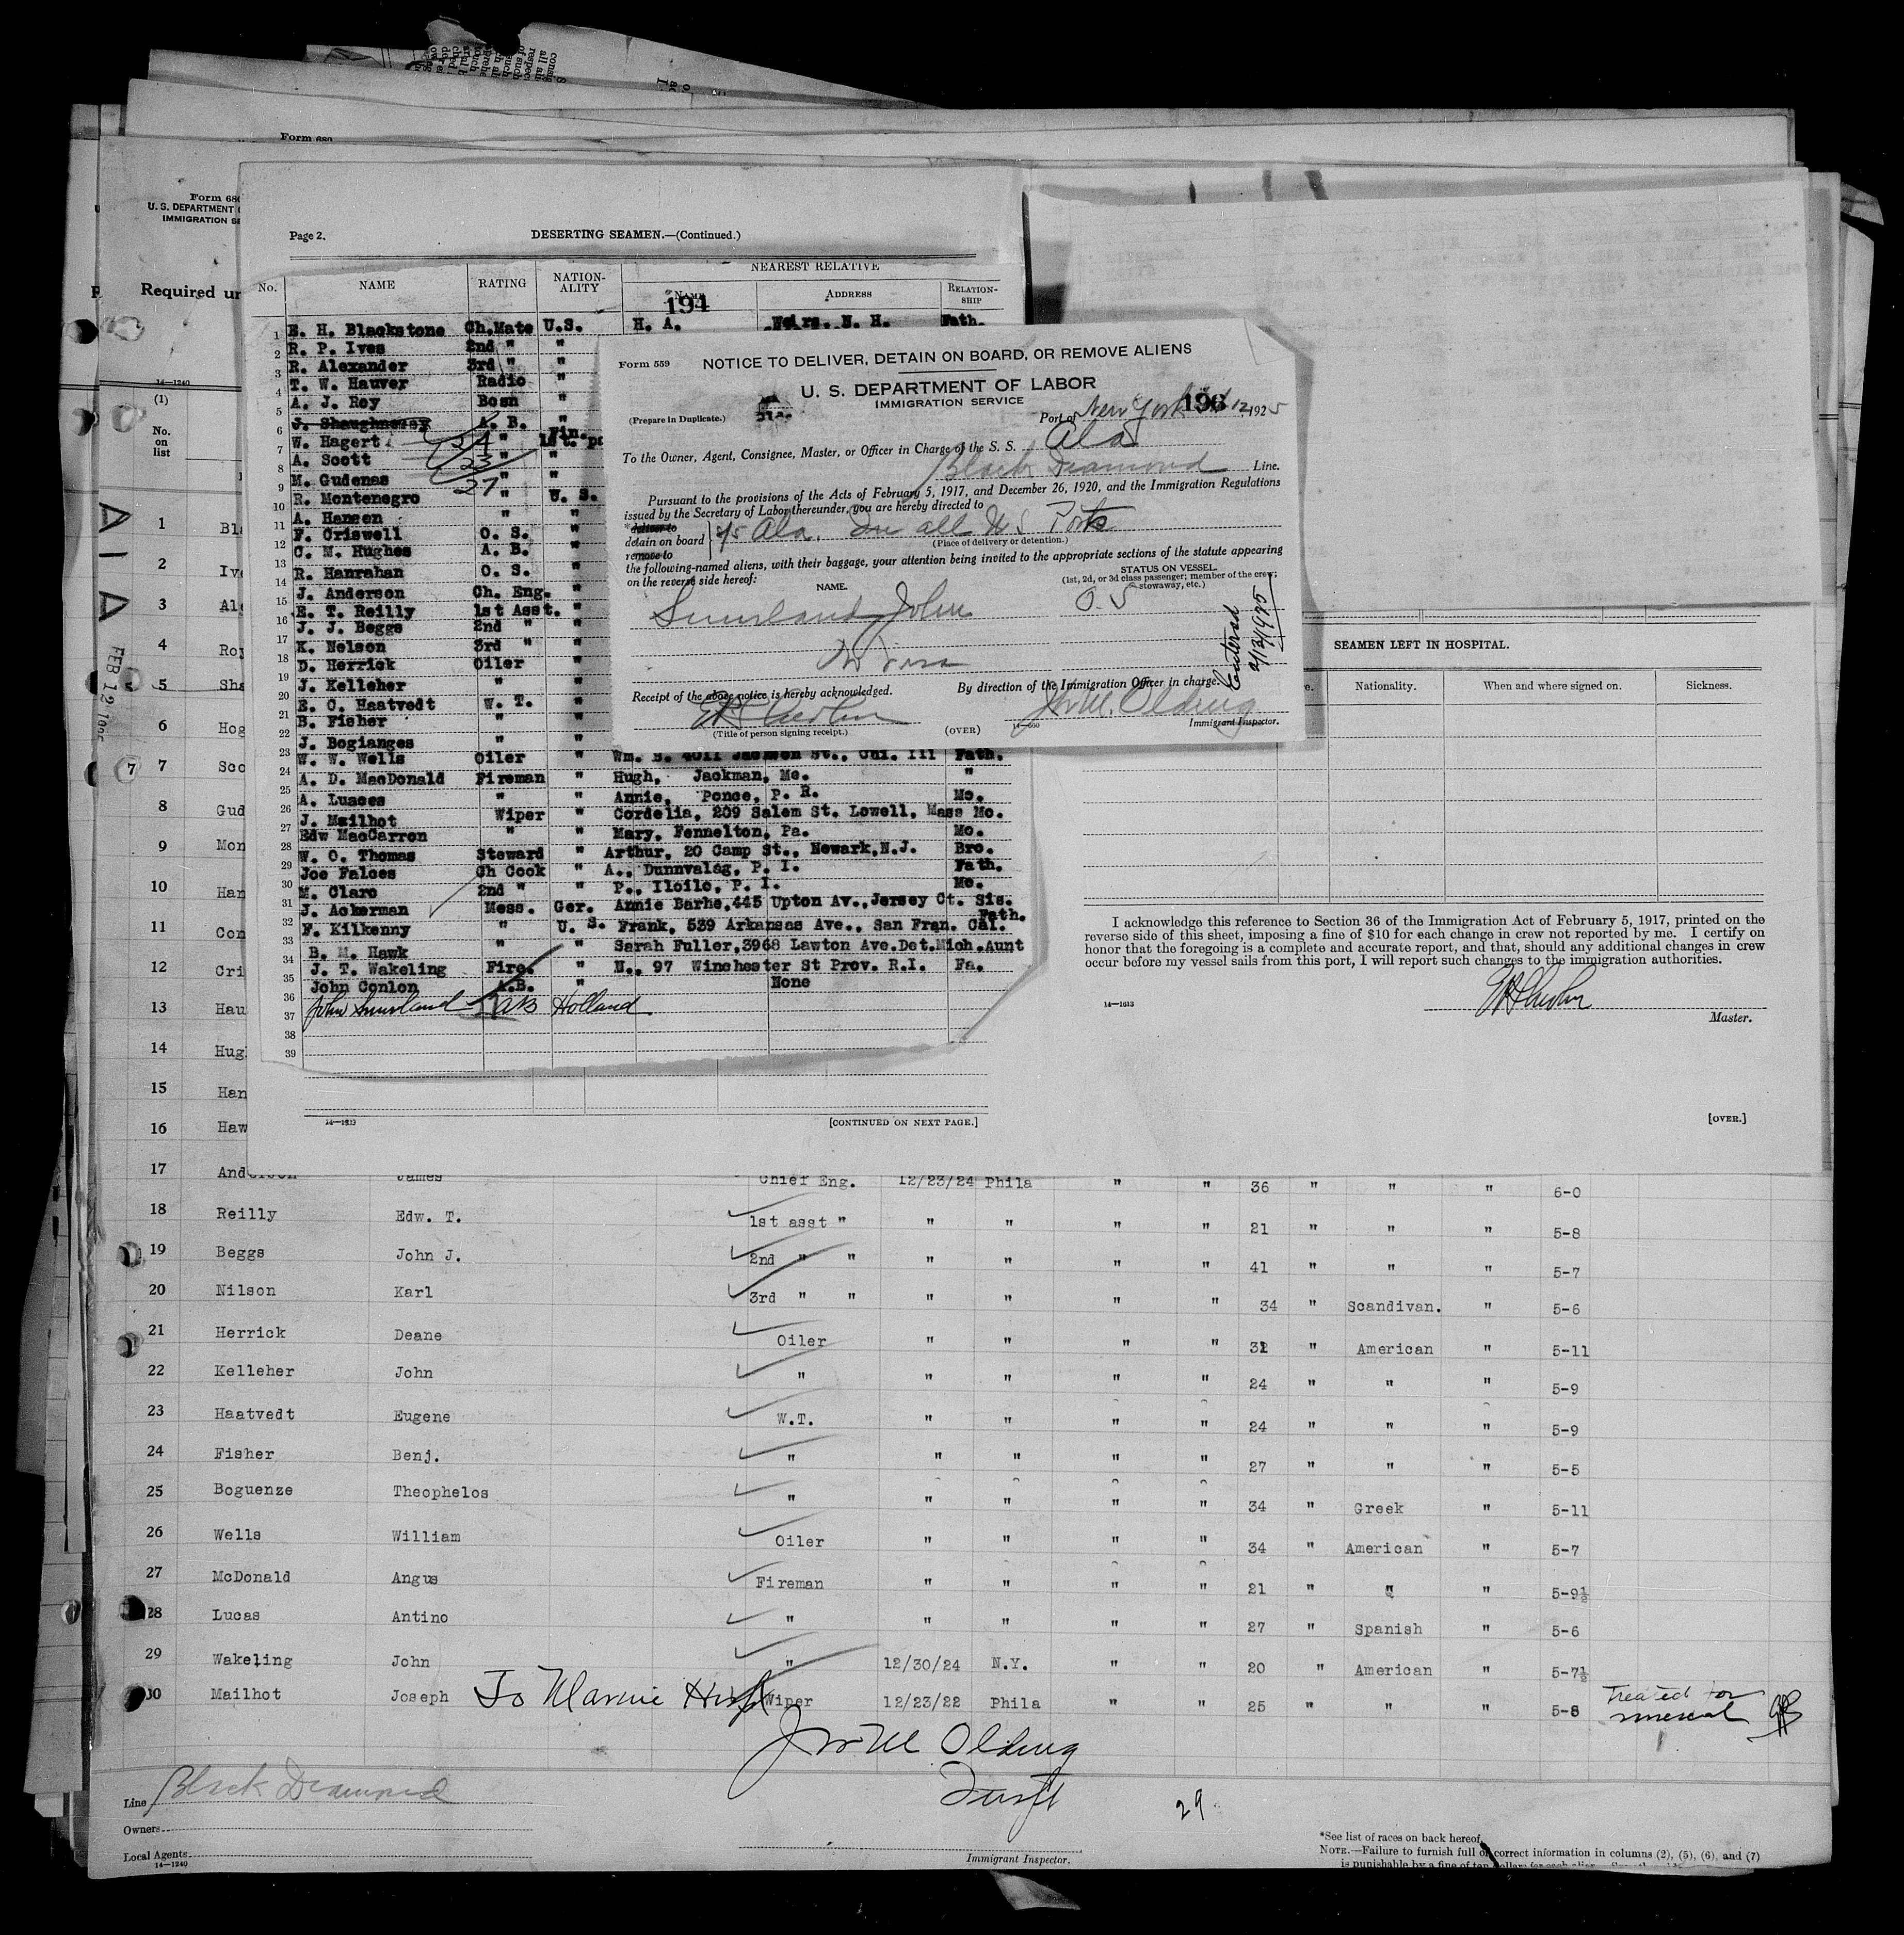 Form 680
Form 680
U. S. DEPARTMENT
IMMIGRATION
Required
14—1240
(1)
No.
on
list
FEB 12
Page 2.
DESERTING SEAMEN.—(Continued.)
No. NAME RATING NATION-ALITY NEAREST RELATIVE
NAME ADDRESS RELATION-SHIP
194
1 E. H. Blackstone Ch.Mate U.S. H. A. Weirs. N. H. Fath.
2 R. P. Ives 2nd " "
3 R. Alexander 3rd " "
4 T. W. Hauver Radio "
5 A. J. Roy Bosn "
6 J. Shaughnessy A. B. "
7 W. Hagert " Fin.
8 A. Scott " "
9 M. Gudenas " "
10 R. Montenegro " U. S.
11 A. Hansen " "
12 F. Criswell O. S. "
13 C. M. Hughes A. B. "
14 R. Hanrahan O. S. "
15 J. Anderson Ch. Eng. "
16 E. T. Reilly 1st Asst. "
17 J. J. Beggs 2nd " "
18 K. Nelson 3rd " "
19 D. Herrick Oiler "
20 J. Kelleher " "
21 E. C. Haatvedt W. T. "
22 B. Fisher " "
23 J. Bogianges " "
24 W. W. Wells Oiler " Wm. B. 4011 Jackson St., Chi. Ill Fath.
25 A. D. MacDonald Fireman " Hugh, Jackman, Me. "
26 A. Luaces " " Annie, Ponce, P. R. Mo.
27 J. Mailhot Wiper " Cordelia, 209 Salem St. Lowell, Mass Mo.
28 Edw MacCarron " " Mary, Fennelton, Pa. Mo.
29 W. O. Thomas Steward " Arthur, 20 Camp St., Newark,N.J. Bro.
30 Joe Falces Ch Cook " A., Dunnvalsg, P. I. Fath.
31 M. Claro 2nd " " P., Iloilo, P. I. Mo.
32 J. Ackerman Mess. Ger. Annie Barhe,445 Upton Av.,Jersey Ct. Sis.
33 F. Kilkenny " U. S. Frank, 539 Arkansas Ave., San Fran. Cal. Fath.
34 B. M. Hawk " " Sarah Fuller,3968 Lawton Ave.Det.Mich.Aunt
35 J. T. Wakeling Fire. " N., 97 Winchester St Prov. R.I. Fa.
36 John Conlon A.B. " None
37 John Smurland AB Holland
38
39
14—1613
[CONTINUED ON NEXT PAGE.]
Form 559 NOTICE TO DELIVER, DETAIN ON BOARD, OR REMOVE ALIENS
U. S. DEPARTMENT OF LABOR
IMMIGRATION SERVICE
196
(Prepare in Duplicate.) Port of New York 12, 1925
To the Owner, Agent, Consignee, Master, or Officer in Charge of the S. S. Ala
Black Diamond Line.
Pursuant to the provisions of the Acts of February 5, 1917, and December 26, 1920, and the Immigration Regulations
issued by the Secretary of Labor thereunder, you are hereby directed to
*deliver to
detain on board
remove to
Ala. In all U S Ports
(Place of delivery or detention.)
the following-named aliens, with their baggage, your attention being invited to the appropriate sections of the statute appearing
on the reverse side hereof:
NAME. STATUS ON VESSEL.
(1st, 2d, or 3d class passenger; member of the crew;
stowaway, etc.)
Smurland John O. S
Entered
2/13/1925
Receipt of the above notice is hereby acknowledged. By direction of the Immigration Officer in charge.
Jno M. Olding
(Title of person signing receipt.) (OVER) 14—560 Immigrant Inspector.
SEAMEN LEFT IN HOSPITAL.
Nationality. When and where signed on. Sickness.
I acknowledge this reference to Section 36 of the Immigration Act of February 5, 1917, printed on the
reverse side of this sheet, imposing a fine of $10 for each change in crew not reported by me. I certify on
honor that the foregoing is a complete and accurate report, and that, should any additional changes in crew
occur before my vessel sails from this port, I will report such changes to the immigration authorities.
14—1613
Master.
[OVER.]
1
2
3
4
5
6
7
8
9
10
11
12
13
14
15
16
17 Anderson James Chief Eng. 12/23/24 Phila " " 36 " " " 6-0
18 Reilly Edw. T. 1st asst " " " " " 21 " " " 5-8
19 Beggs John J. 2nd " " " " " " 41 " " " 5-7
20 Nilson Karl 3rd " " " " " " 34 " Scandivan. " 5-6
21 Herrick Deane Oiler " " " " 32 " American " 5-11
22 Kelleher John " " " " " 24 " " " 5-9
23 Haatvedt Eugene W.T. " " " " 24 " " " 5-9
24 Fisher Benj. " " " " " 27 " " " 5-5
25 Boguenze Theophelos " " " " " 34 " Greek " 5-11
26 Wells William Oiler " " " " 34 " American " 5-7
27 McDonald Angus Fireman " " " " 21 " " " 5-9½
28 Lucas Antino " " " " " 27 " Spanish " 5-6
29 Wakeling John " 12/30/24 N.Y. " " 20 " American " 5-7½
30 Mailhot Joseph To Marine Hosp Wiper 12/23/22 Phila " " 25 " " " 5-8 Treated for
Jno M Olding
Insp
29
Line Black Diamond
Owners
Local Agents
14—1240
Immigrant Inspector.
*See list of races on back hereof.
NOTE.—Failure to furnish full or correct information in columns (2), (5), (6), and (7)
is punishable by a fine of ten dollars for each alien